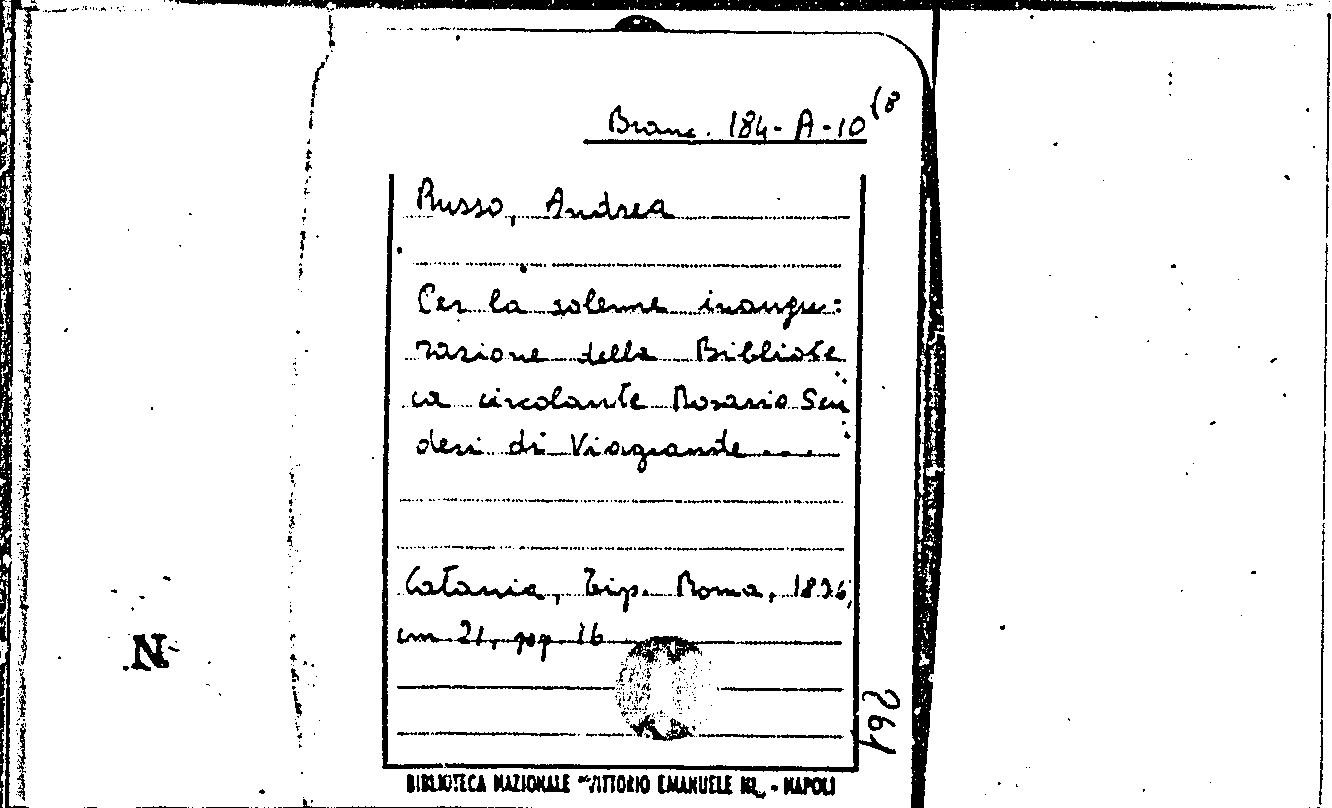 Branc. 184-A-10 (8
Russo, Andrea
Per la solenne inaugu=
razione della Bibliote
ca circolante Rosario Scu
deri di Viagrande ....
Catania, Tip. Roma,
cm 21, pp. 16
264
N
BIBLIOTECA NAZIONALE "VITTORIO EMANUELE III" - NAPOLI